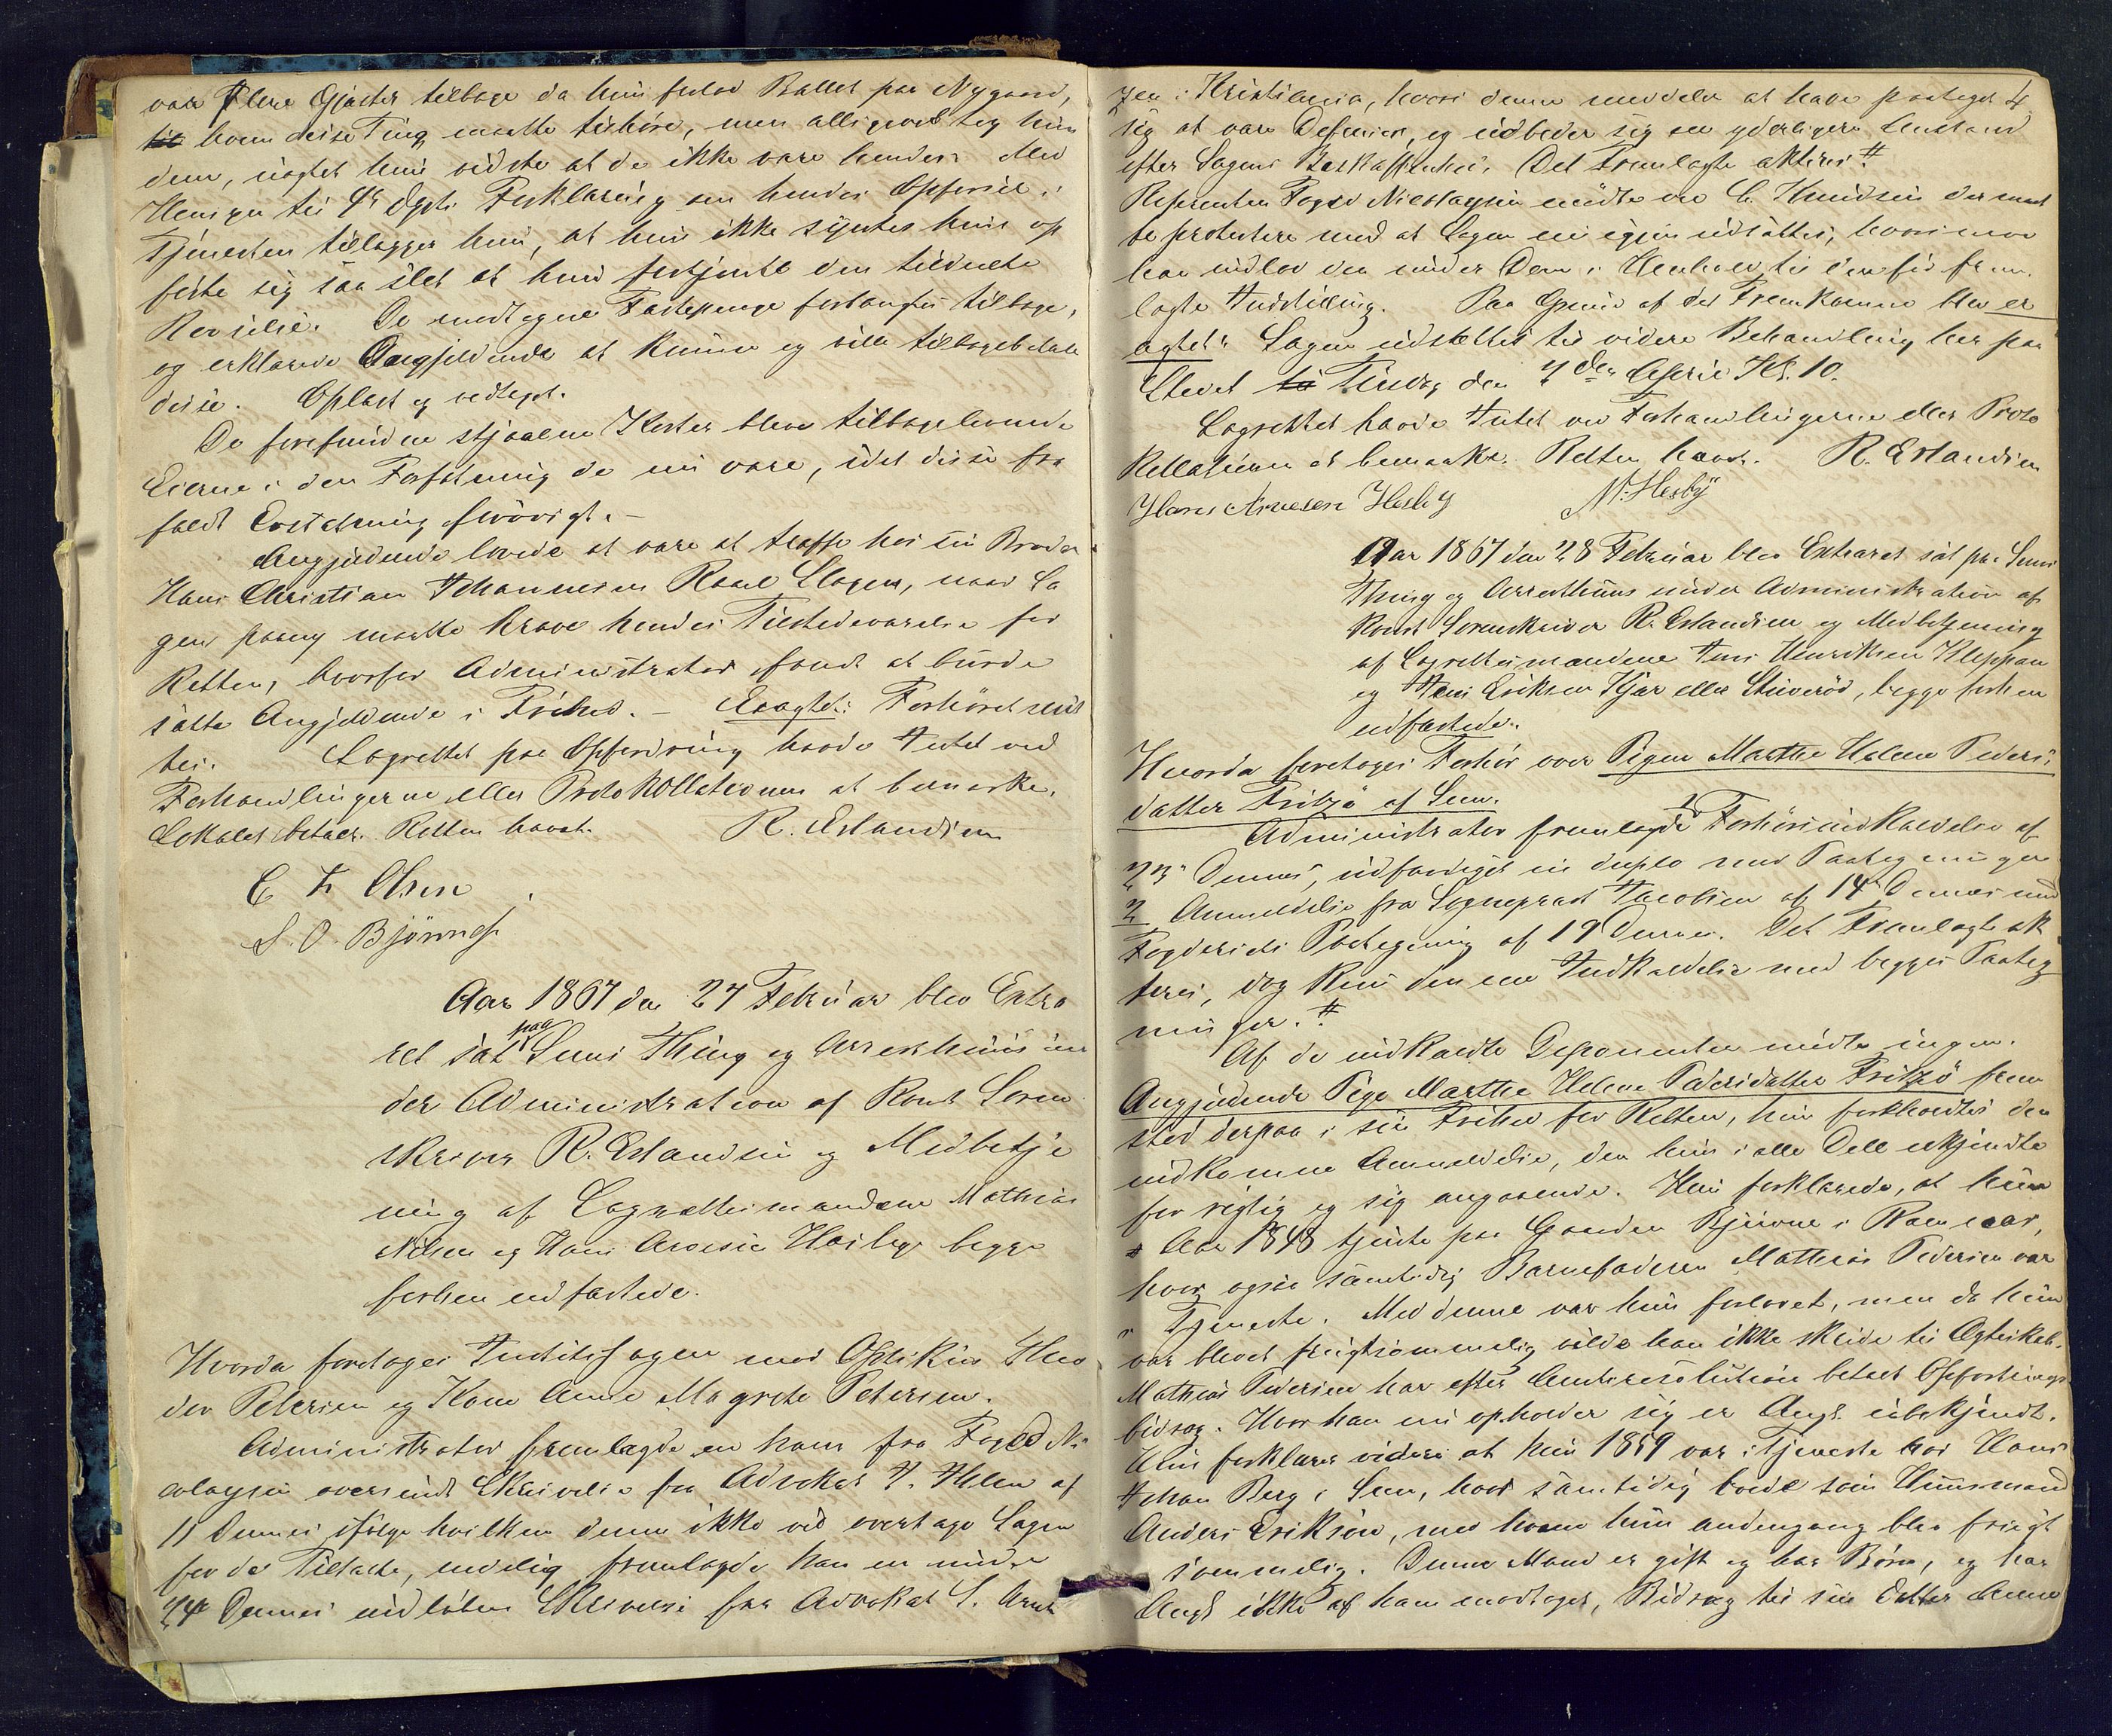 var flere Gjæster tilbage da hun forlod Ballet paa Nygaard,
hvem disse Ting maatte tilhøre, men alligevel tog hun
dem, uagtet hun vidste at de ikke vare hendes. Med
Hensyn til Forklaring om hendes Opførsel i
Tjenesten tillægger hun, at hun ikke syntes hun op
førte sig saa slet at hun fortjente den tildeelte
Revselse. De modtagne Fæstepenge forlangtes tilbage,
og erklærede Angjældende at kunne og ville tilbagebetale
disse. Oplæst og vedtaget.
De forefundne stjaalne Koster bleve tilbageleverede
Eierne i den Forfatning de nu vare, idet disse fra
faldt Erstatning forøvrigt.
Angjældende lovede at være at træffe hos sin Broder
Hans Christian Johannesen Slagen, naar Sa
gen paany maatte kræve hendes Tilstedeværelse for
Retten, hvorfor Administrator fandt at burde
sætte Angjældende i Frihed. – Eragtet: Forhøret slut
tes. Lagrettet paa Opfordring havde Intet ved
Forhandlingerne eller Protokollationen at bemærke.
Lokalet betalt. Retten hævet. R. Erlandsen
E T Olsen
S. O. Bjønnes
Aar 1867 den 27 Februar blev Extra
ret sat paa Sems Thing og Arresthuus un
der Administration af Konst Soren
skriver R. Erlandsen og Medbetje
ning af Lagrettesmændene Mathias
Nilsen og Hans Arvesen Hesby begge
forhen edfæstede.
Hvorda foretoges Justitssagen mod Optikus Theo
dor Petersen og Kone Anne Magrete Petersen.
Administrator fremlagde en ham fra Foged Ni
colaysen oversendt Skrivelse fra Advokat J. af
11 Dennes ifølge hvilken denne ikke vil overtage Sagen
for de Tiltalte, endelig fremlagde han en under
24 Dennes indløben Skrivelse fra Advokat S. Arnt
zen i Kristiania, hvori denne meddeler at have paataget 4
sig at være Defensor, og udbeder sig en yderligere Anstand
efter Sagens Beskaffenhed. Det Fremlagte akteres. #
Referenten Foged Nicolaysen mødte ved C. Knudsen der maat
te protestere mod at Sagen nu igjen udsættes, hvorimod
han indlod den under Dom i Henhold til den før frem
lagte Indstilling. Paa Grund af det Fremkomne blev er
agtet: Sagen udsættes til videre Behandling her paa
Stedet Tirsdag den den April Kl. 10.
Lagrettet havde Intet ved Forhandlingerne eller Proto
kollationen at bemærke. Retten hævet. R. Erlandsen
Hans Arvesen Hesby M. Hesby
Aar 1867 den 28 Februar blev Extraret sat paa Sems
Thing og Arresthuus under Administration af
Konst Sorenskriver R. Erlandsen og Medbetjening
af Lagrettesmændene Jens Henriksen Kleppan
og Jens Eriksen Kjær eller Stuverød, begge forhen
edfæstede.
Hvorda foretoges Forhør over Pigen Marthe Helene Peders
datter Fritzø af Sem.
Administrator fremlagde 1 Forhørsindkaldelse af
23 Dennes, udfærdiget in duplo med Paategninger
2 Anmeldelse fra Sogneprest Jacobsen af 14 Dennes med
Fogderiets Paategning af 19 Dennes. Det Fremlagte ak
teres, dog kun den ene Indkaldelse med begges Paateg
ninger. #
Af de indkaldte Deponenter mødte ingen.
Angjældende Pige Marthe Helene Pedersdatter Fritzø frem
stod derpaa i sin Frihed for Retten, hun forholdtes den
indkomne Anmeldelse, den hun i alle Dele erkjendte
for rigtig og sig angaaende. Hun forklarede, at hun
Aar 1848 tjente paa Gaarden Bjuerne i Ramnæs,
hvor ogsaa samtidig Barnefaderen Mathias Pedersen var
i Tjeneste. Med denne var hun forlovet, men da hun
var bleven frugtsommelig vilde han ikke skride til Ægteskab.
Mathias Pedersen har efter Amtsresolution betalt Opfostrings
bidrag. Hvor han nu opholder sig er Angj. ubekjendt.
Hun forklarer videre at hun 1859 var i Tjeneste hos Hans
Johan Berg i Sem, hvor samtidig boede som Huusmand
Anders Eriksen, med hvem hun andengang blev frugt
sommelig. Denne Mand er gift og har Børn, og har
Angj. ikke af ham modtaget, Bidrag til sin Datter Anne